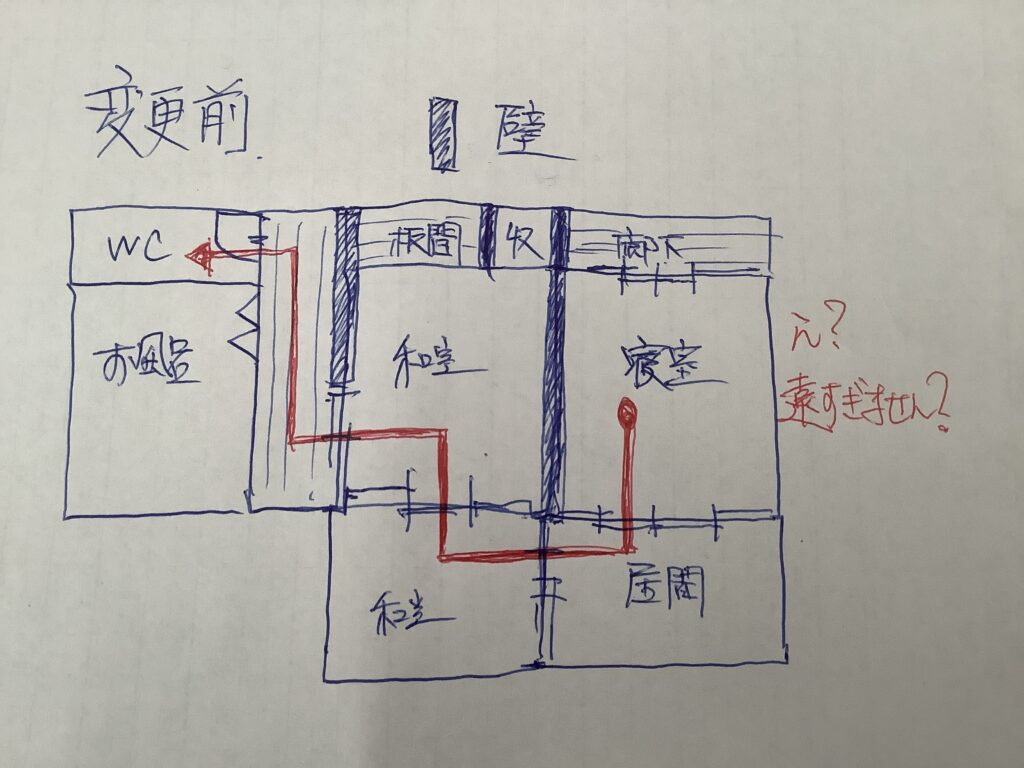 変更前.
壁
WC
板間
収
廊下
お風呂
和室
寝室
え?
遠すぎません?
和室
居間